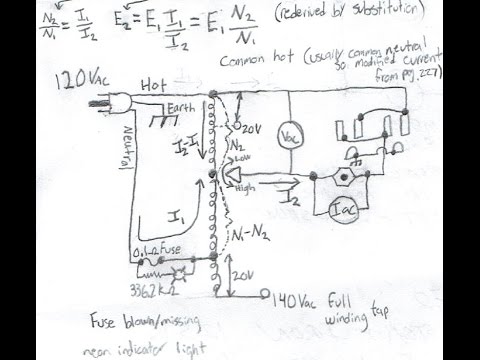 N₂/N₁ = I₁/I₂
E₂ = E₁ I₁/I₂ = E₁ N₂/N₁
(rederived by substitution)
Common hot (usually common neutral
so modified current
from pg. 227)
120VAC
Hot
Earth
Neutral
I₂-I₁
20V
N₂
Low
High
Vac
I₂
Iac
I₁
N₁-N₂
0.1Ω Fuse
336.2KΩ
20V
140VAC Full
winding tap
Fuse blown/missing
neon indicator light